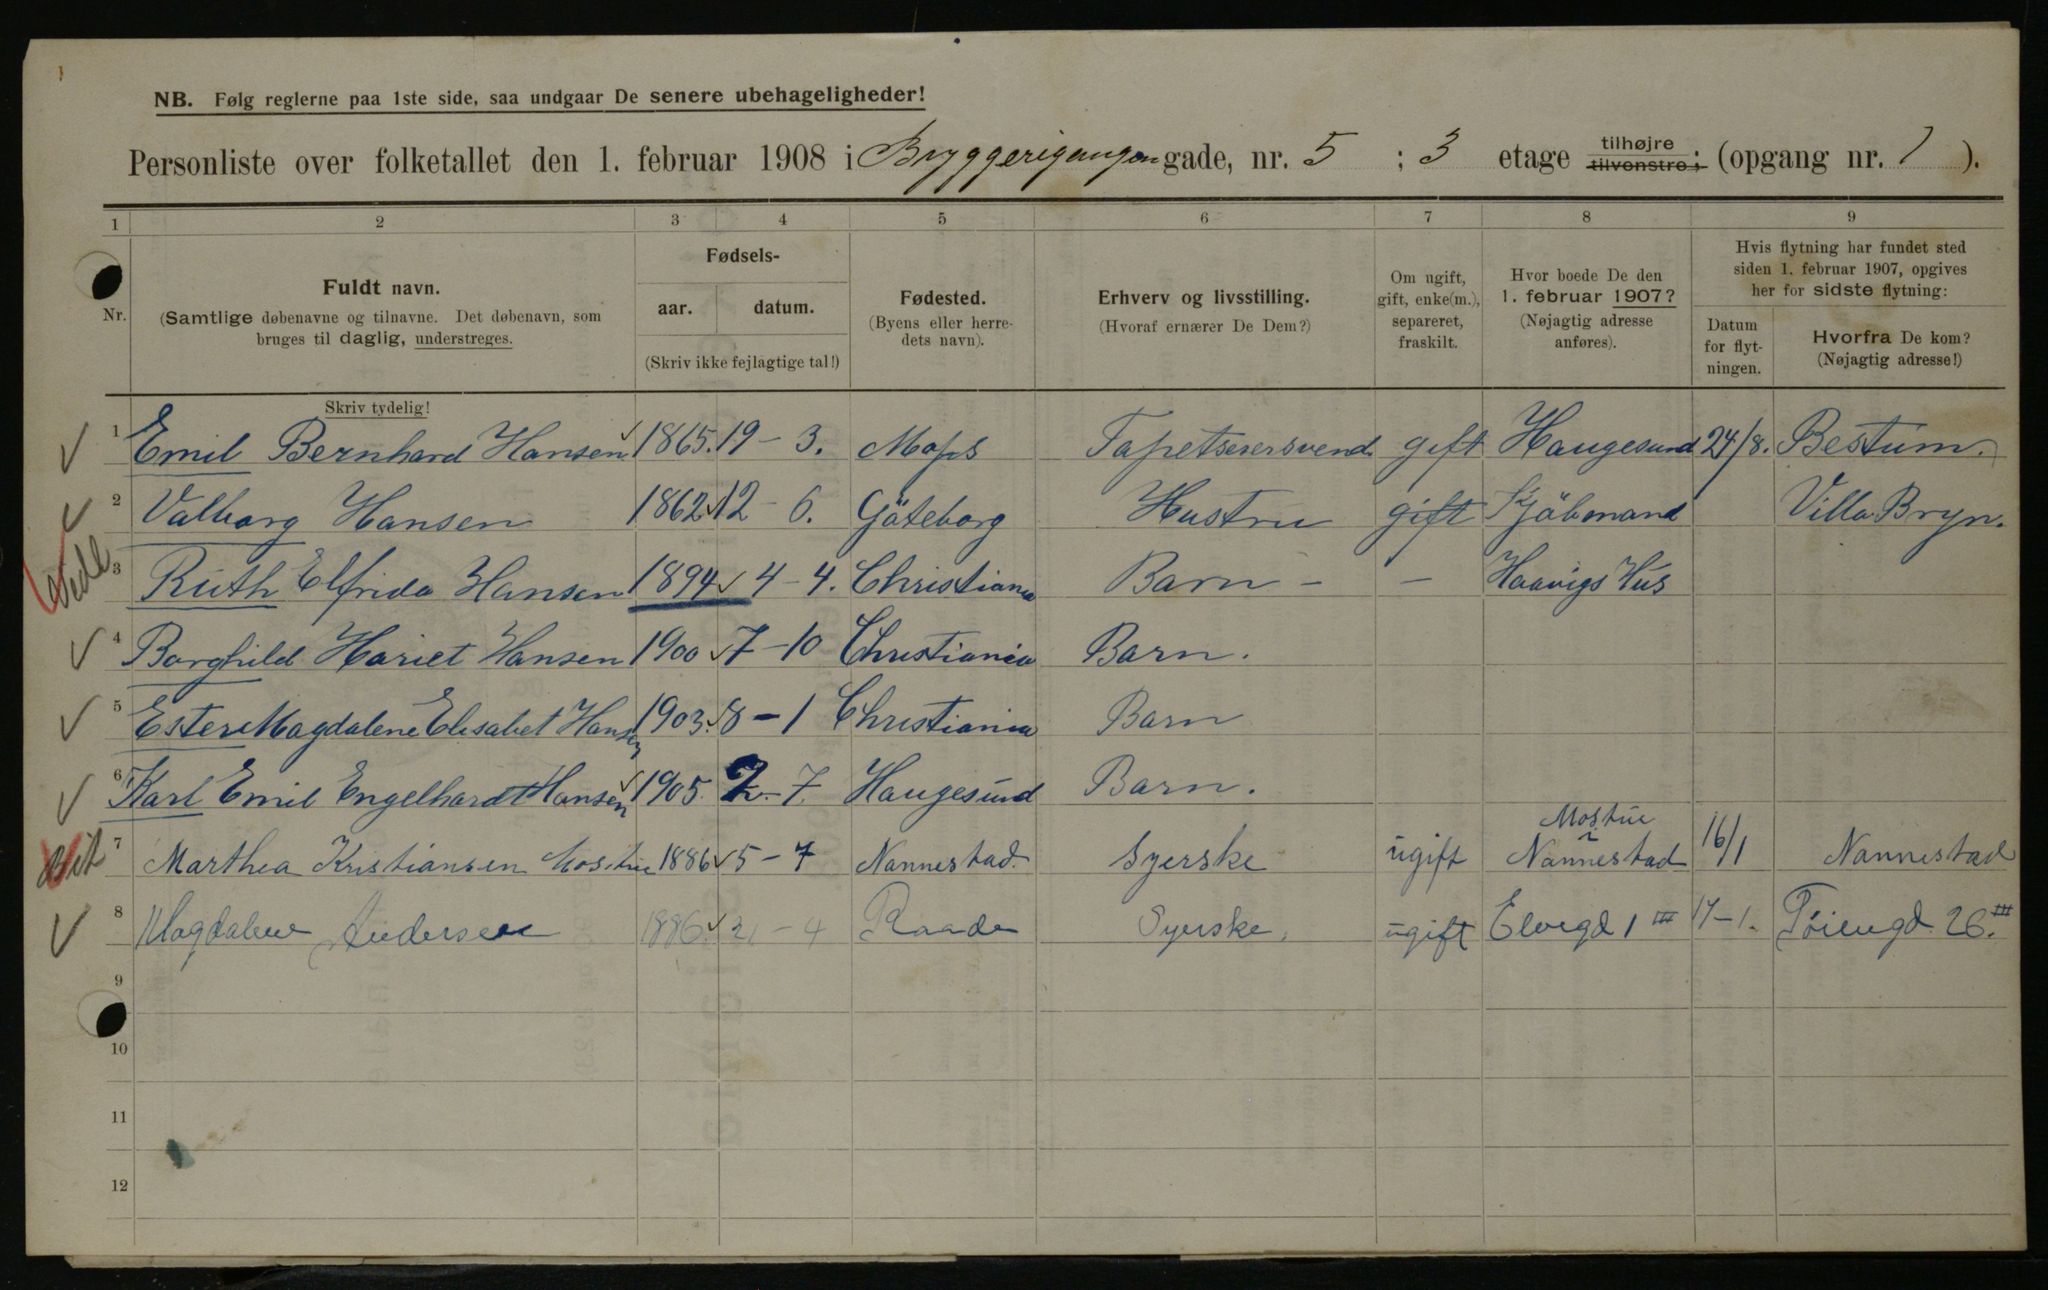 NB. Følg reglerne paa 1ste side, saa undgaar De senere ubehageligheder!
Personliste over folketallet den 1. februar 1908 i Bryggerigangen gade, nr. 5 ; 3 etage tilhøjre tilvenstre; (opgang nr. 1 ).
1 2 3 4 5 6 7 8 9
Nr.
Fuldt navn.
(Samtlige døbenavne og tilnavne. Det døbenavn, som
bruges til daglig, understreges.
Skriv tydelig!
Fødsels-
aar. datum.
(Skriv ikke fejlagtige tal!)
Fødested.
(Byens eller herre-
dets navn).
Erhverv og livsstilling.
(Hvoraf ernærer De Dem?)
Om ugift,
gift, enke(m.),
separeret,
fraskilt.
Hvor boede De den
1. februar 1907?
(Nøjagtig adresse
anføres).
Hvis flytning har fundet sted
siden 1. februar 1907, opgives
her for sidste flytning:
Datum
for flyt-
ningen.
Hvorfra De kom?
(Nøjagtig adresse!)
1 Emil Bernhard Hansen 1865. 19 - 3. Moss Tapetserersvend gift Haugesund 24/8. Bestum.
2 Valborg Hansen 1862 12 - 6. Göteborg Hustru gift Kjöbmand Villa Bryn.
3 Ruth Elfrida Hansen 1894 4 - 4. Christiania Barn - - Haavigs Hus
4 Borghild Hariet Hansen 1900 7 - 10 Christiania Barn.
5 Ester Magdalene Elisabet Hansen 1903. 8 - 1 Christiania Barn
6 Karl Emil Engelhardt Hansen 1905. 2 - 7. Haugesund Barn.
7 Marthea Kristiansen Mostue 1886 5 - 7 Nannestad. Syerske ugift Mostue Nannestad 16/1 Nannestad
8 Magdalene Andersen 1886. 21 - 4 Raade Syerske. ugift Elvegd 1 III 17-1. Töiengd 26. III
9
10
11
12